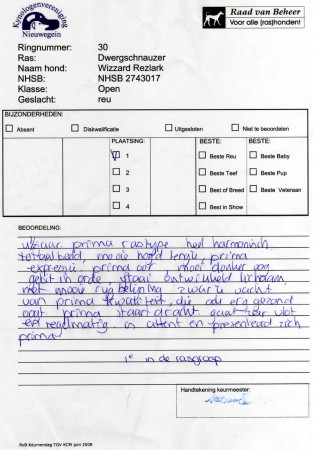 Kynologenvereniging
Nieuwegein
Raad van Beheer
Voor alle (ras)honden!
Ringnummer: 30
Ras: Dwergschnauzer
Naam hond: Wizzard Rezlark
NHSB: NHSB 2743017
Klasse: Open
Geslacht: reu
BIJZONDERHEDEN:
Absent Diskwalificatie Uitgesloten Niet te beoordelen
PLAATSING: BESTE: BESTE:
1 Beste Reu Beste Baby
2 Beste Teef Beste Pup
3 Best of Breed Beste Veteraan
4 Best in Show
BEOORDELING:
prima rastype heel harmonisch
totaalbeeld, mooie hoofd lengte, prima
expressie, prima oor, mooi donker oog
gebit in orde, fraai ontwikkeld lichaam,
met mooie rugbelijning zwarte vacht
van prima kwaliteit, die erg gezond
oogt prima staartdracht gaat hier vlot
en regelmatig, is attent en presenteerd zich
prima
1e in de rasgroep
Handtekening keurmeester:
RvB Keurverslag TGV KCM juni 2008